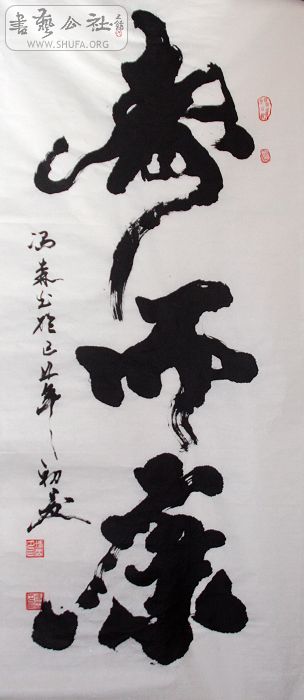 書藝公社
WWW.SHUFA.ORG
寿而康
冯森书於己丑年之初夏